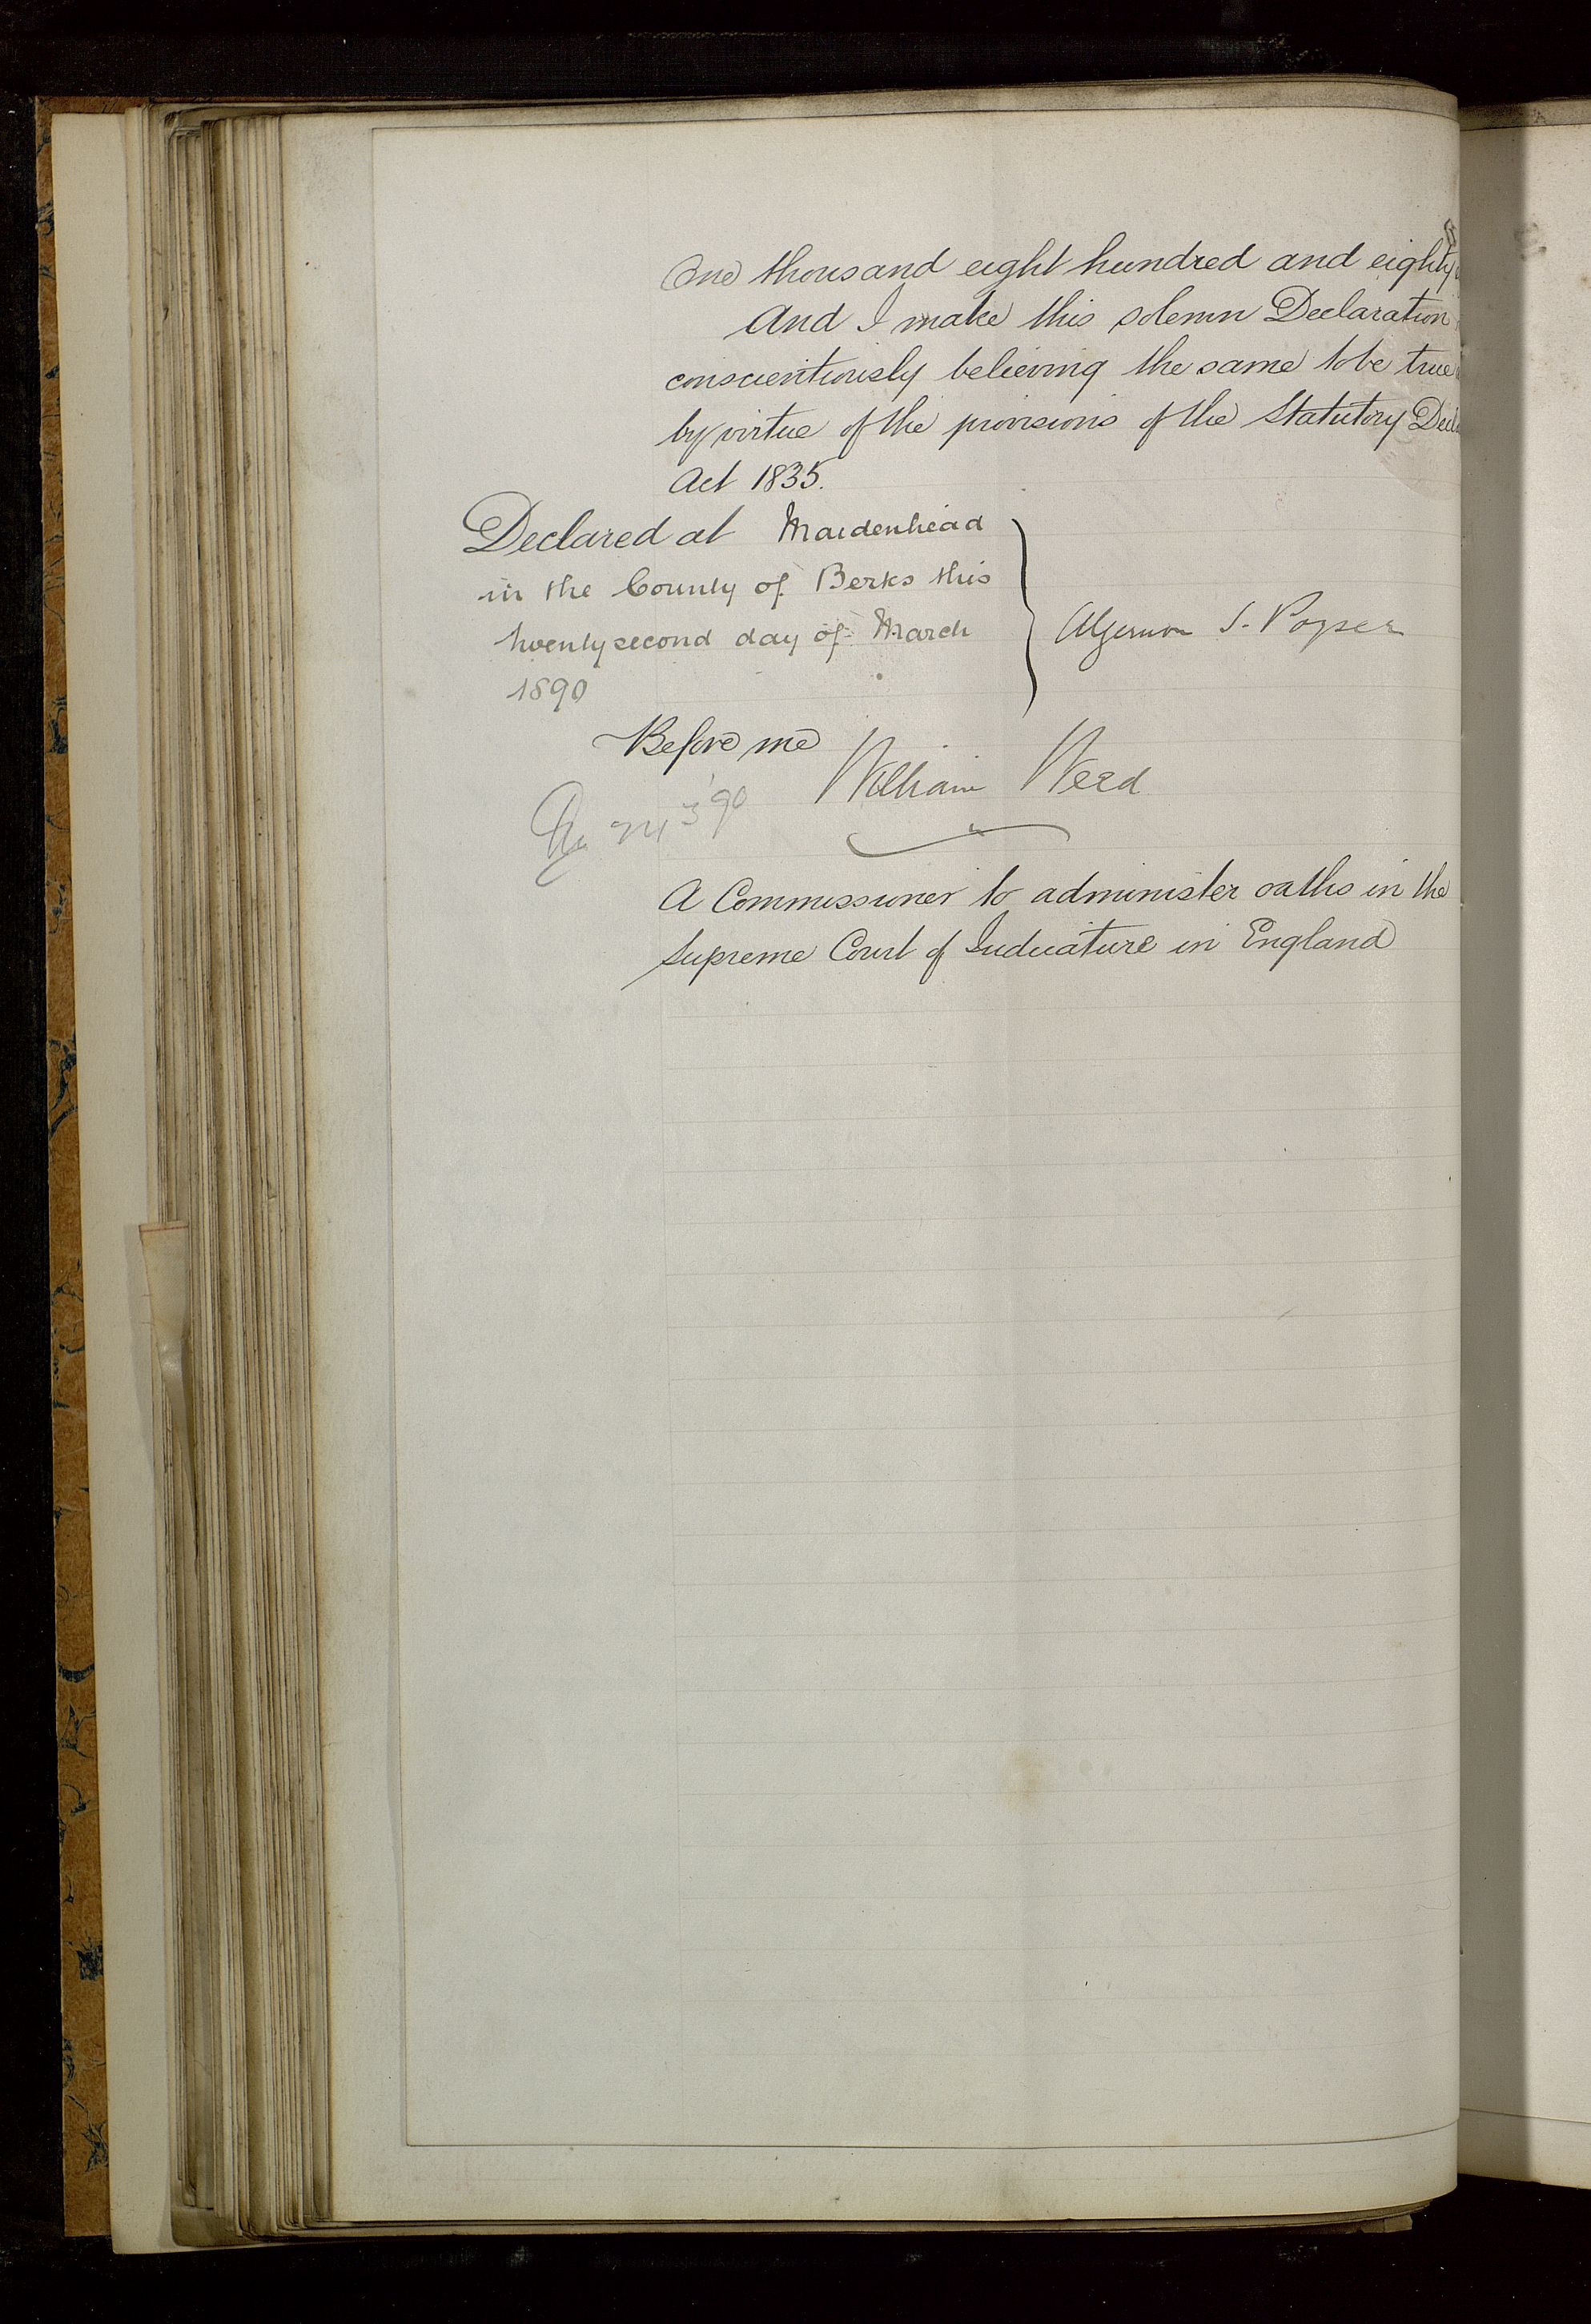 One thousand eight hundred and eighty
And I make this solemn Declaration
conscientiously believing the same to be true
by virtue of the provisions of the Statutory Decla
Act 1835.
Declared at Maidenhead
in the County of Berks this
twenty second day of March
1890
Algernon S. Poyser
Before me William Weed
24 3 90
A Commissioner to administer oaths in the
Supreme Court of Judicature in England